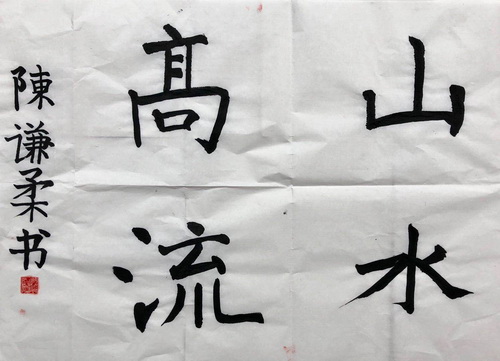 髙山
流水
陳谦柔书